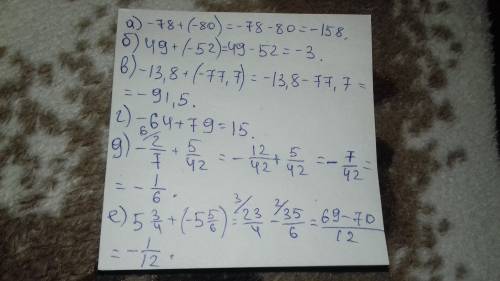 а) -78+(-80)=-78-80=-158.
б) 49+(-52)=49-52=-3.
в) -13,8+(-77,7)=-13,8-77,7=
=-91,5.
г) -64+79=15.
д) -6/ 2/7 + 5/42 = -12/42 + 5/42 = -7/42 =
= -1/6.
е) 5 3/4 + (-5 5/6) = 3/ 23/4 - 2/ 35/6 = (69-70)/12
= -1/12.